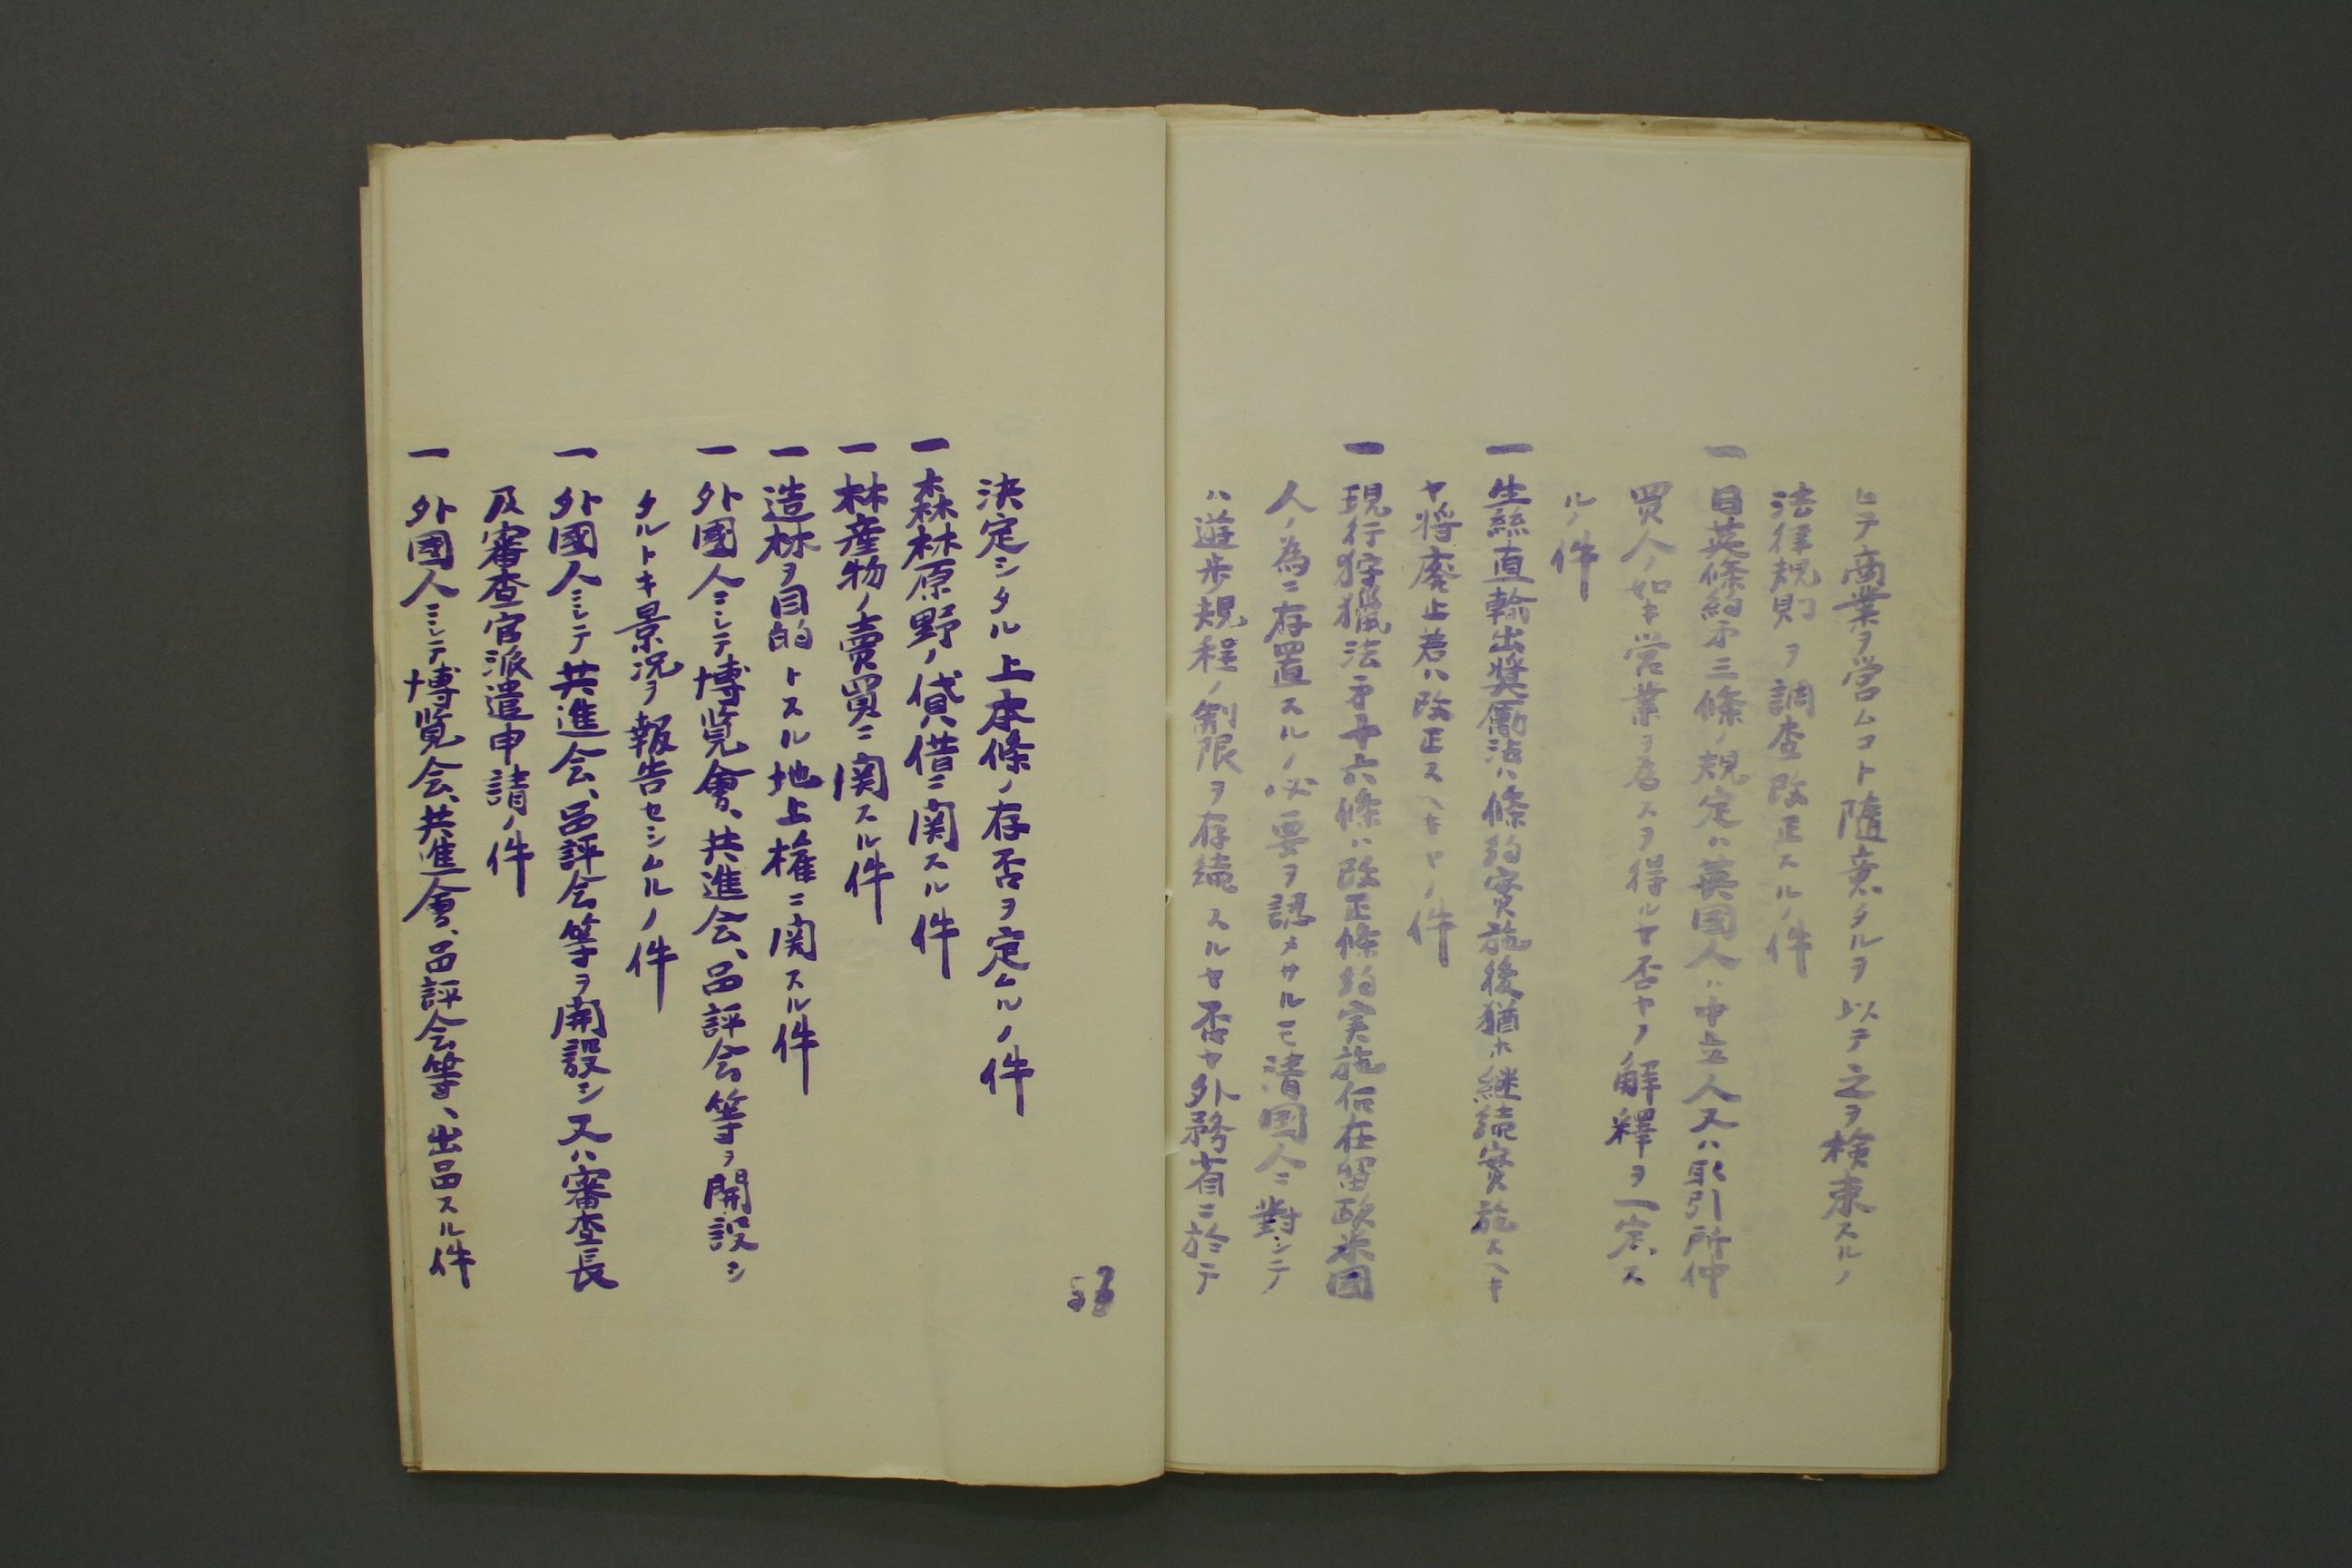 ヒテ商業ヲ営ムコト隨意タルヲ以テ之ヲ檢束スルノ
法律規則ヲ調査改正スルノ件
一 日英條約第三條ノ規定ハ英国人ハ中立人又ハ取引所仲
買人ノ如キ営業ヲ為スヲ得ルヤ否ヤノ解釋ヲ一定ス
ルノ件
一 生絲直輸出奨勵法ハ條約實施後猶ホ継続實施スヘキ
ヤ将廃止若ハ改正スヘキヤノ件
一 現行狩猟法第十六條ハ改正條約実施后在留欧米国
人ノ為ニ存置スルノ必要ヲ認メサルモ清国人ニ對シテ
ハ遊歩規程ノ制限ヲ存続スルヤ否ヤ外務省ニ於テ
決定シタル上本條ノ存否ヲ定ムルノ件
一 森林原野ノ貸借ニ関スル件
一 林産物ノ賣買ニ関スル件
一 造林ヲ目的トスル地上権ニ関スル件
一 外國人ニシテ博覧會、共進会、品評会等ヲ開設シ
タルトキ景况ヲ報告セシムルノ件
一 外國人ニシテ共進会、品評会等ヲ開設シ又ハ審査長
及審査官派遣申請ノ件
一 外國人ニシテ博覧会、共進會、品評会等、出品スル件